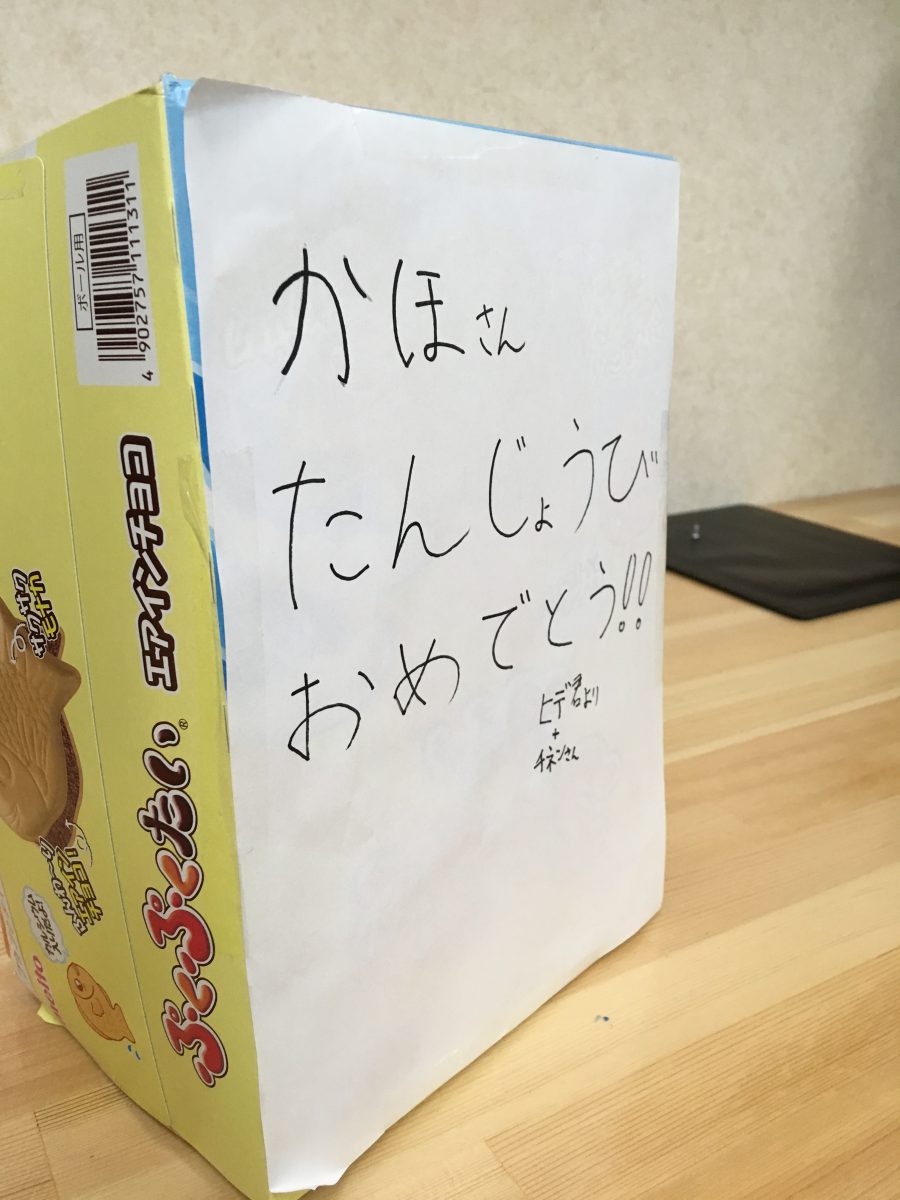 かほさん
たんじょうび
おめでとう!!
ヒデ君より
+
チネンさん
ボール用
4902757111311
ぷくぷくたい®
エアインチョコ
サクサク
モナカ
エアイン
チョコ
meito